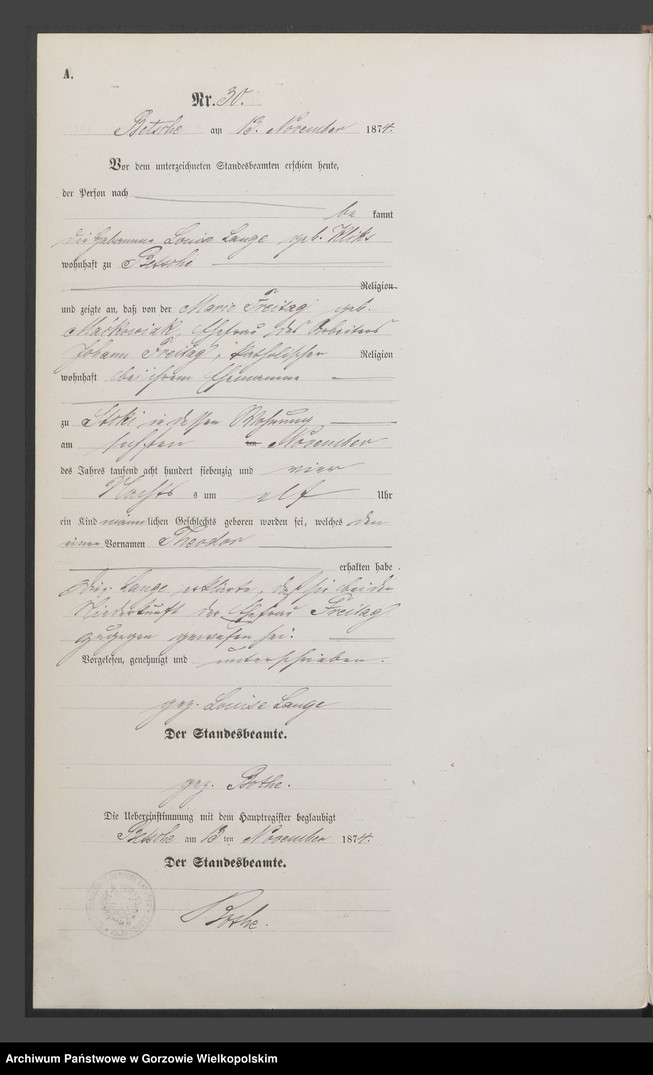 A.
Nr. 30.
Betsche am 13. November 1874.
Vor dem unterzeichneten Standesbeamten erschien heute,
der Person nach
be kannt
die Hebamme Louise Lange geb. Kliks
wohnhaft zu Betsche
Religion
und zeigte an, daß von der Marie Freitag geb.
Maćkowiak, Ehefrau des Arbeiters
Johann Freitag, katholischer Religion
wohnhaft bei ihrem Ehemanne
zu Stoki in dessen Wohnung
am November
des Jahres tausend acht hundert siebenzig und vier
Nachts s um elf Uhr
ein Kind männlichen Geschlechts geboren worden sei, welches den
einen Vornamen Theodor
erhalten habe.
Lange erklärte, daß sie bei der
Niederkunft der Ehefrau Freitag
zugegen gewesen sei.
Vorgelesen, genehmigt und unterschrieben.
gez. Louise Lange
Der Standesbeamte.
gez. Bothe.
Die Uebereinstimmung mit dem Hauptregister beglaubigt
Betsche am 13 ten November 1874.
Der Standesbeamte.
Bothe.
Archiwum Państwowe w Gorzowie Wielkopolskim